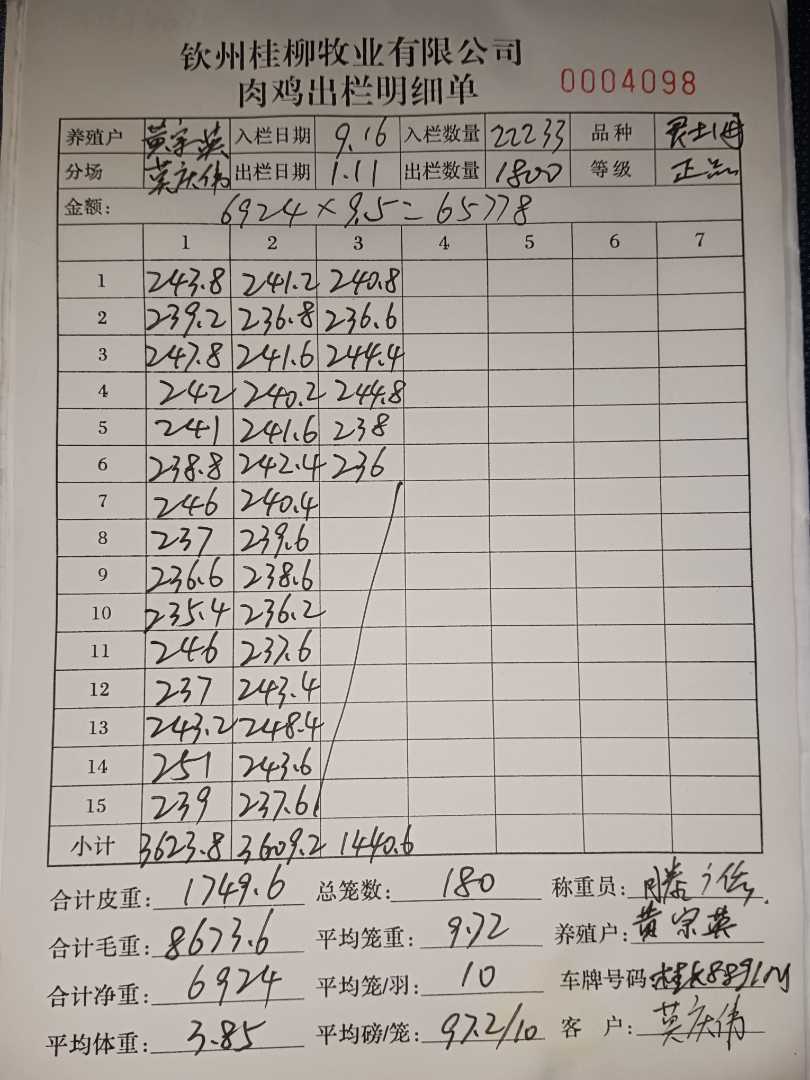 钦州桂柳牧业有限公司
肉鸡出栏明细单 0004098
养殖户 黄宗英 入栏日期 9.16 入栏数量 22233 品种
分场 莫庆伟 出栏日期 1.11 出栏数量 1800 等级 正品
金额: 6924×9.5=65778
1 2 3 4 5 6 7
1 243.8 241.2 240.8
2 239.2 236.8 236.6
3 247.8 241.6 244.4
4 242 240.2 244.8
5 241 241.6 238
6 238.8 242.4 236
7 246 240.4
8 237 239.6
9 236.6 238.6
10 235.4 236.2
11 246 237.6
12 237 243.4
13 243.2 248.4
14 251 243.6
15 239 237.6
小计 3623.8 3609.2 1440.6
合计皮重: 1749.6 总笼数: 180 称重员:
合计毛重: 8673.6 平均笼重: 9.72 养殖户: 黄宗英
合计净重: 6924 平均笼/羽: 10 车牌号码:
平均体重: 3.85 平均磅/笼: 97.2/10 客户: 莫庆伟